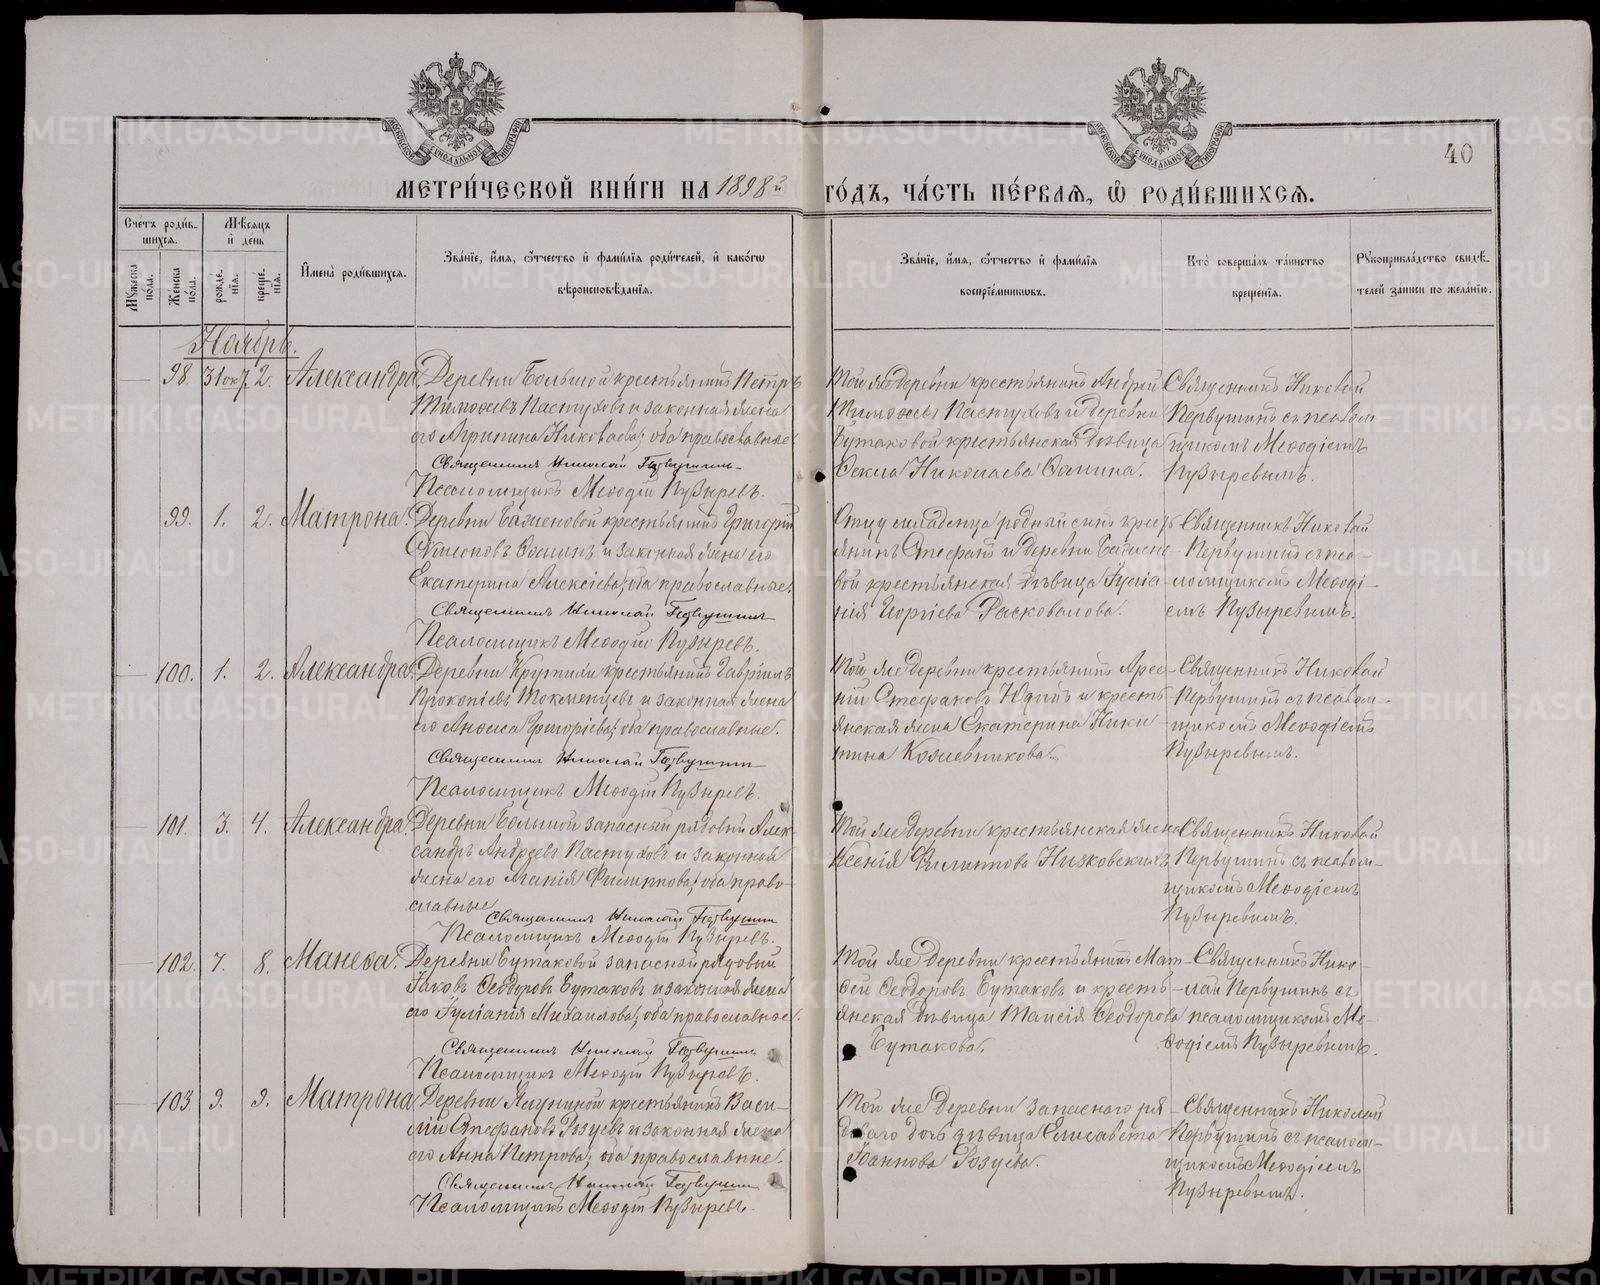 МОСКОВСКОЙ СѴНОДАЛЬНОЙ ТИПОГРАФИИ
МОСКОВСКОЙ СѴНОДАЛЬНОЙ ТИПОГРАФИИ
40
МЕТРИ́ЧЕСКОЙ КНИ́ГИ НА 1898й ГО́ДЪ, ЧА́СТЬ ПЕ́РВАЯ, Ѿ РОДИ́ВШИХСЯ.
Сче́тъ роди́в-
шихся.
Мѣ́сяцъ
и́ де́нь
Му́жеска по́ла.
Же́нска по́ла.
рожде́-
нїя.
креще́-
нїя.
И҆мена̀ роди́вшихся.
Зва́нїе, и҆́мя, ѻ҆́тчество и҆ фами́лїя роди́телей, и҆ како́гѡ
вѣроисповѣ́данїя.
Зва́нїе, и҆́мя, ѻ҆́тчество и҆ фами́лїя
воспрїе́мникѡвъ.
Кто̀ соверша́лъ та́инство
креще́нїя.
Рукоприкла́дство свидѣ́-
телей за́писи по жела́нїю.
Ноябрь.
98. 31 ок. 2. Александра. Деревни Большой крестьянинъ Петръ
Тимофеевъ Пастуховъ и законная жена
его Агрипина Николаева; оба православные
Священникъ Николай Первушинъ
Псаломщикъ Меѳодій Пузыревъ.
Той же деревни крестьянинъ Андрей
Тимофеевъ Пастуховъ и деревни
Бутаковой крестьянская дѣвица
Ѳекла Николаева Ѳомина.
Священникъ Николай
Первушинъ съ псалом-
щикомъ Меѳодіемъ
Пузыревымъ.
99. 1. 2. Матрона. Деревни Баженовой крестьянинъ Григорій
Ѳоминъ и законная жена его
Екатерина Алексіева; оба православные.
Священникъ Николай Первушинъ
Псаломщикъ Меѳодій Пузыревъ.
Отцу младенца родный сынъ кресть-
янинъ Стефанъ и деревни Бажено-
вой крестьянская дѣвица Гуліа-
нія Георгіева Расковалова.
Священникъ Николай
Первушинъ съ пса-
ломщикомъ Меѳоді-
емъ Пузыревымъ.
100. 1. 2. Александра. Деревни крестьянинъ Гавріилъ
Прокопіевъ Токменцевъ и законная жена
его Анфиса Григоріева; оба православные.
Священникъ Николай Первушинъ
Псаломщикъ Меѳодій Пузыревъ.
Той же деревни крестьянинъ Арсе-
ній Стефановъ Юдинъ и кресть-
янская жена Екатерина Ники-
тина Кожевникова.
Священникъ Николай
Первушинъ съ псалом-
щикомъ Меѳодіемъ
Пузыревымъ.
101. 3. 4. Александра. Деревни Большой запасный рядовый Алек-
сандръ Андреевъ Пастуховъ и законная
жена его Марія Филиппова; оба право-
славные
Священникъ Николай Первушинъ
Псаломщикъ Меѳодій Пузыревъ.
Той же деревни крестьянская жена
Ксенія Филиппова Низковскихъ
Священникъ Николай
Первушинъ съ псалом-
щикомъ Меѳодіемъ
Пузыревымъ.
102. 7. 8. Манефа. Деревни Бутаковой запасный рядовый
Іаковъ Ѳеодоровъ Бутаковъ и законная жена
его Гуліанія Михаилова; оба православные.
Священникъ Николай Первушинъ
Псаломщикъ Меѳодій Пузыревъ.
Той же деревни крестьянинъ Мат-
ѳей Ѳеодоровъ Бутаковъ и кресть-
янская дѣвица Таисія Ѳеодорова
Бутакова.
Священникъ Нико-
лай Первушинъ съ
псаломщикомъ Ме-
ѳодіемъ Пузыревымъ.
103. 9. 9. Матрона. Деревни Ягуниной крестьянинъ Васи-
лій Стефановъ Гозуевъ и законная жена
его Анна Петрова; оба православные.
Священникъ Николай Первушинъ
Псаломщикъ Меѳодій Пузыревъ.
Той же деревни запаснаго ря-
доваго дочь дѣвица Елисавета
Іоаннова Гозуева.
Священникъ Николай
Первушинъ съ псалом-
щикомъ Меѳодіемъ
Пузыревымъ.
METRIKI.GASO-URAL.RU